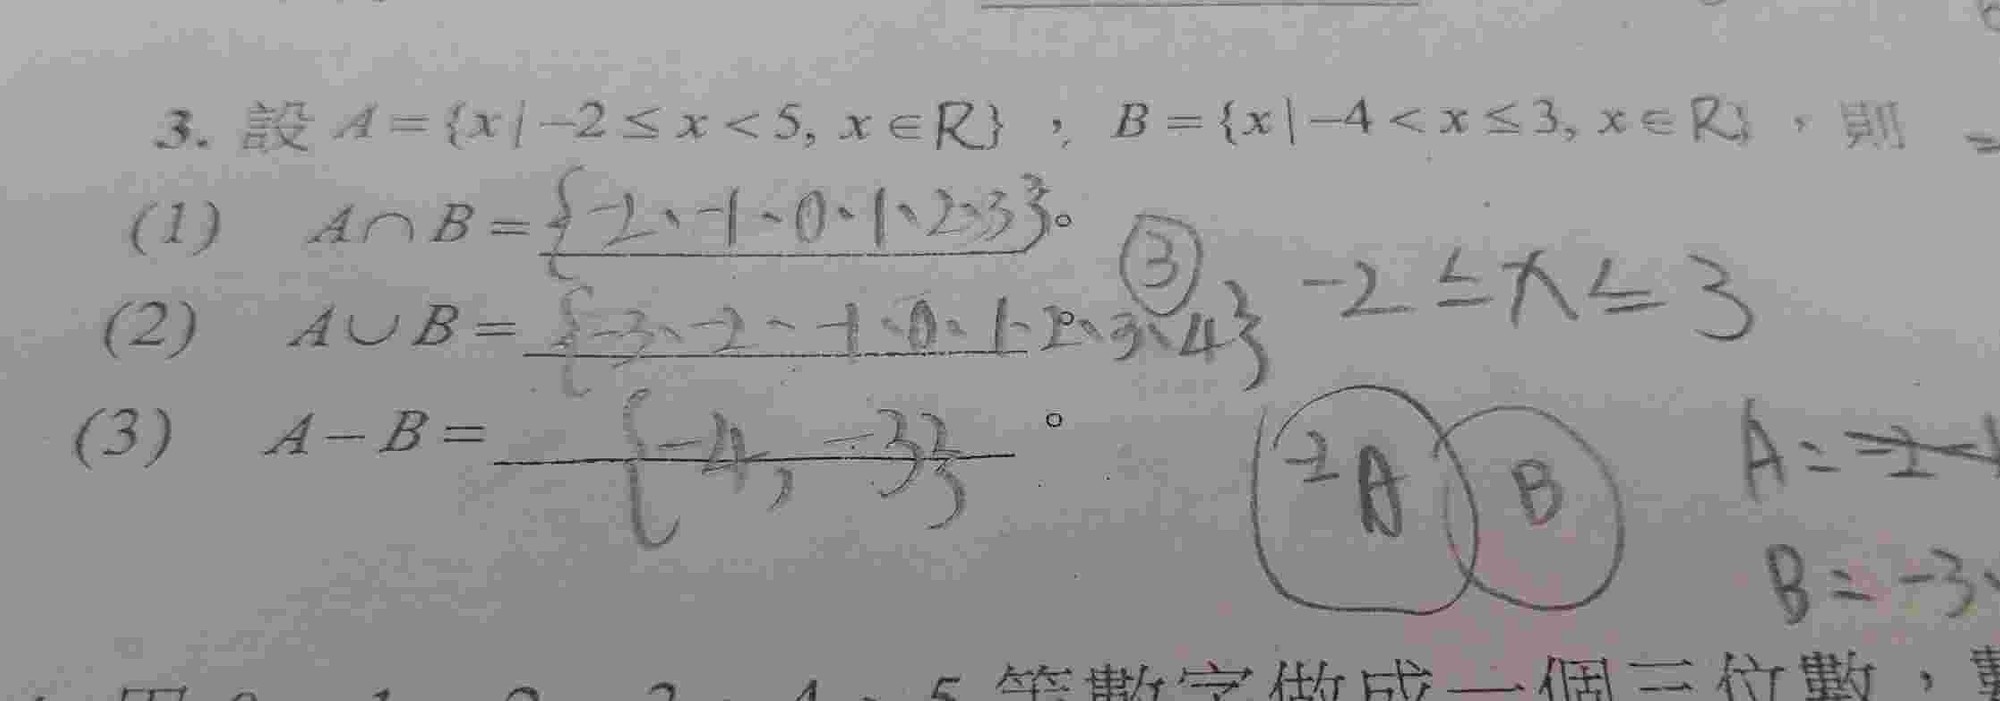 3. 設 A = {x | -2 ≤ x < 5, x ∈ R}，B = {x | -4 < x ≤ 3, x ∈ R}，則
(1) A ∩ B = {-2、-1、0、1、2、3}。
③ -2 ≤ x ≤ 3
(2) A ∪ B = {-3、-2、-1、0、1、2、3、4}。
(3) A - B = {-4, -3}。
A B
A =
B = -3、
4、5 等數字做成一個三位數，